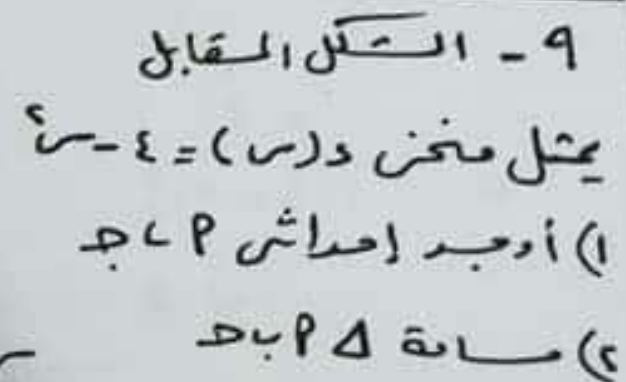 ٩ - الشكل المقابل
يمثل منحنى د(س) = ٤ - س٢
١) أوجد إحداثى P ، جـ
٢) مساحة Δ P ب جـ